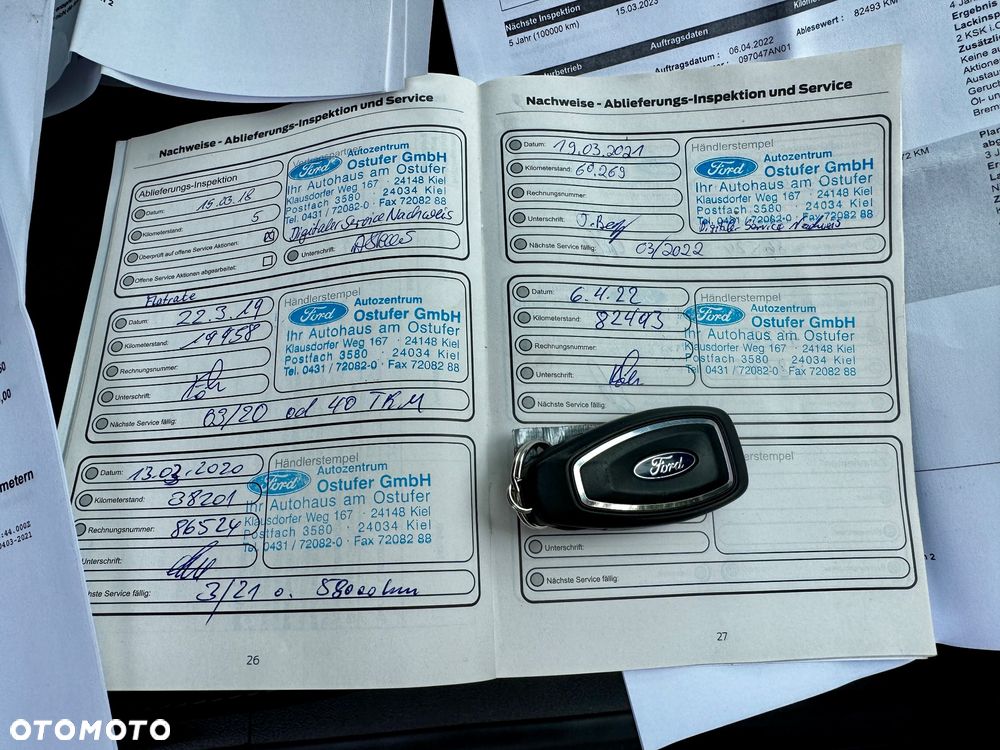 Nächste Inspektion 15.03.2023
5 Jahr (100000 km)
Auftragsdaten
Auftragsdatum : 06.04.2022
097047AN01
Ablesewert : 82493 KM
Ergebnis
Lackinsp
2 KSK i.O
Zusätzlic
Keine au
Aktione
Austau
Geruch
Öl- un
Brem
72 KM
Nachweise - Ablieferungs-Inspektion und Service
Ablieferungs-Inspektion
Datum: 15.03.18
Kilometerstand: 5
Überprüft auf offene Service Aktionen:
Offene Service Aktionen abgearbeitet:
Ford Autozentrum
Ostufer GmbH
Ihr Autohaus am Ostufer
Klausdorfer Weg 167 · 24148 Kiel
Postfach 3580 · 24034 Kiel
Tel. 0431 / 72082-0 · Fax 72082 88
Digitaler Service Nachweis
Unterschrift:
Flatrate
Datum: 22.3.19
Kilometerstand: 19958
Rechnungsnummer:
Unterschrift:
Nächste Service fällig: 03/20 od 40 TKM
Händlerstempel
Ford Autozentrum
Ostufer GmbH
Ihr Autohaus am Ostufer
Klausdorfer Weg 167 · 24148 Kiel
Postfach 3580 · 24034 Kiel
Tel. 0431 / 72082-0 · Fax 72082 88
Datum: 13.03.2020
Kilometerstand: 38201
Rechnungsnummer: 86524
Unterschrift:
Nächste Service fällig: 3/21 o. 58000 km
Händlerstempel
Ford Autozentrum
Ostufer GmbH
Ihr Autohaus am Ostufer
Klausdorfer Weg 167 · 24148 Kiel
Postfach 3580 · 24034 Kiel
Tel. 0431 / 72082-0 · Fax 72082 88
26
Nachweise - Ablieferungs-Inspektion und Service
Datum: 19.03.2021
Kilometerstand: 60.269
Rechnungsnummer:
Unterschrift:
Nächste Service fällig: 03/2022
Händlerstempel
Ford Autozentrum
Ostufer GmbH
Ihr Autohaus am Ostufer
Klausdorfer Weg 167 · 24148 Kiel
Postfach 3580 · 24034 Kiel
Tel. 0431 / 72082-0 · Fax 72082 88
Digitaler Service Nachweis
Datum: 6.4.22
Kilometerstand: 82493
Rechnungsnummer:
Unterschrift:
Nächste Service fällig:
Händlerstempel
Ford Autozentrum
Ostufer GmbH
Ihr Autohaus am Ostufer
Klausdorfer Weg 167 · 24148 Kiel
Postfach 3580 · 24034 Kiel
Tel. 0431 / 72082-0 · Fax 72082 88
Ford
Unterschrift:
Nächste Service fällig:
27
OTOMOTO